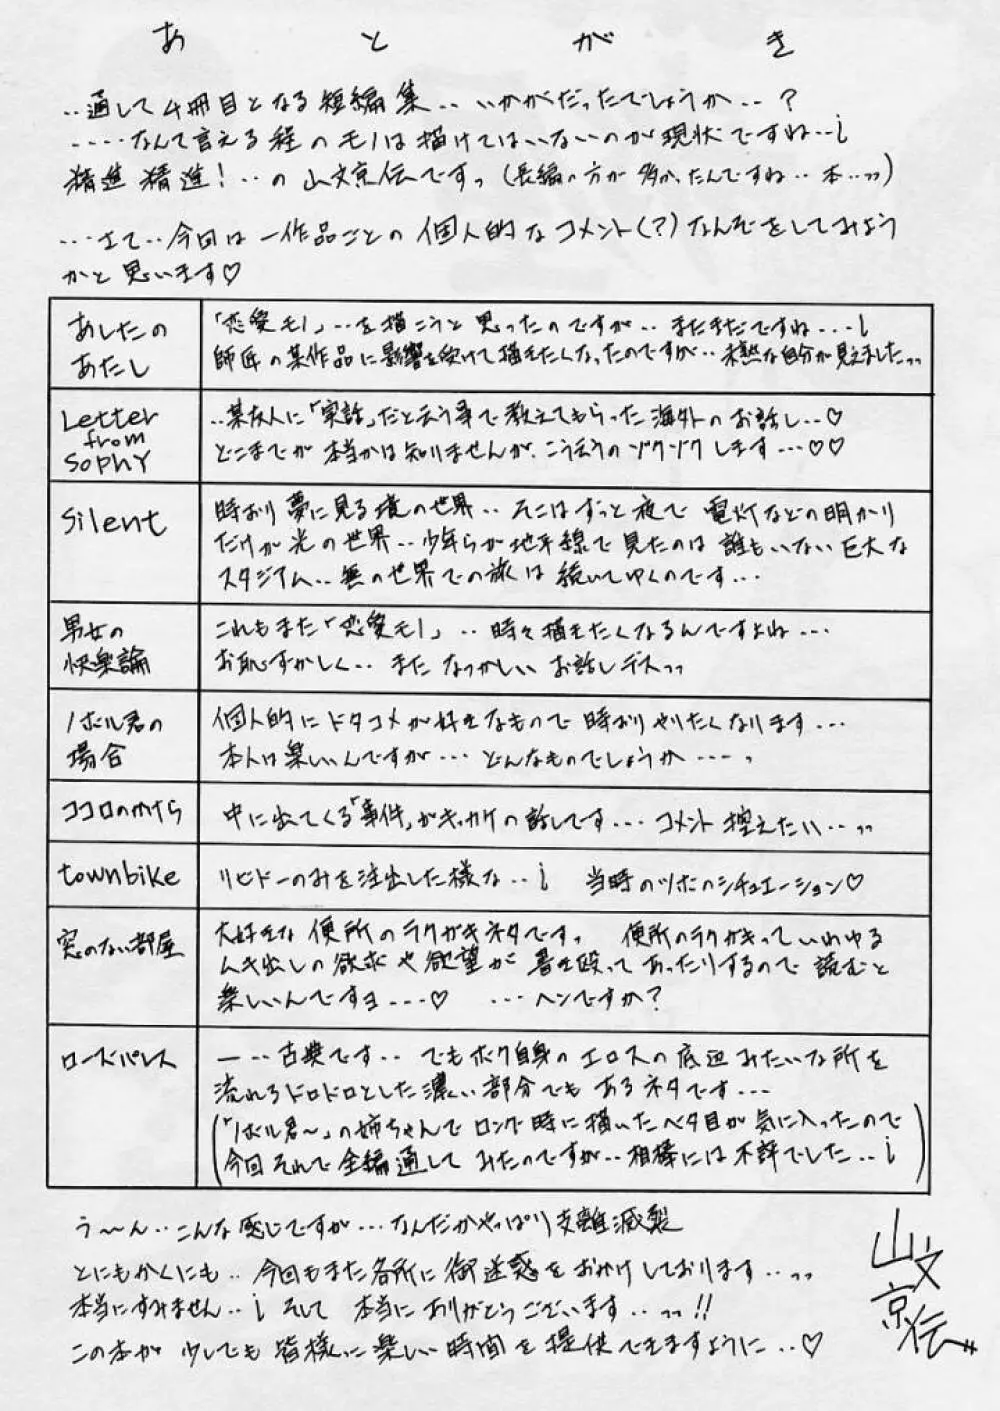 あとがき
‥通して4冊目となる短編集‥いかがだったでしょうか‥?
‥‥なんて言える程のモノは描けてはいないのが現状ですね‥¡
精進精進!‥の山文京伝ですっ(長編の方が多かったんですね‥本‥ッッ)
‥さて‥今回は一作品ごとの個人的なコメント(?)なんぞをしてみよう
かと思います♡
あしたの
あたし
「恋愛モノ」‥を描こうと思ったのですが‥まだまだですね‥¡
師匠の某作品に影響を受けて描きたくなったのですが‥未熟な自分が見えましたッッ
Letter
from
SOPHY
‥某友人に「実話」だと云う事で教えてもらった海外のお話し‥♡
どこまでが本当かは知りませんが、こう云うのゾクゾクします‥♡♡
Silent
時おり夢に見る境の世界‥そこはずっと夜で電灯などの明かり
だけが光の世界‥少年らが地平線で見たのは誰もいない巨大な
スタジアム‥無の世界での旅は続いてゆくのです‥
男女の
快楽論
これもまた「恋愛モノ」‥時々描きたくなるんですよね‥
お恥ずかしく‥またなつかしいお話しデスッッ
ノボル君の
場合
個人的にドタコメが好きなもので時おりやりたくなります‥
本人は楽しいんですが‥どんなものでしょうか‥‥っ
ココロのかけら
中に出てくる「事件」がキッカケの話しです‥コメント控えたい‥ッッ
townbike
リビドーのみを注出した様な‥¡ 当時のツボのシチュエーション♡
窓のない部屋
大好きな便所のラクガキネタですっ 便所のラクガキっていわゆる
ムキ出しの欲求や欲望が書き殴ってあったりするので読むと
楽しいんですヨ‥♡ ‥ヘンですか?
ローズパレス
―‥古典です‥でもボク自身のエロスの底辺みたいな所を
流れるドロドロとした濃い部分でもあるネタです‥
(「ノボル君〜」の姉ちゃんでロング時に描いたベタ目が気に入ったので
今回それで全編通してみたのですが‥相棒には不評でした‥¡)
う〜ん‥こんな感じですが‥なんだかやっぱり支離滅裂
とにもかくにも‥今回もまた各所に御迷惑をおかけしております‥ッッ
本当にすみません‥¡そして本当にありがとうございます‥ッッ!!
この本が少しでも皆様に楽しい時間を提供できますように‥♡
山文
京伝